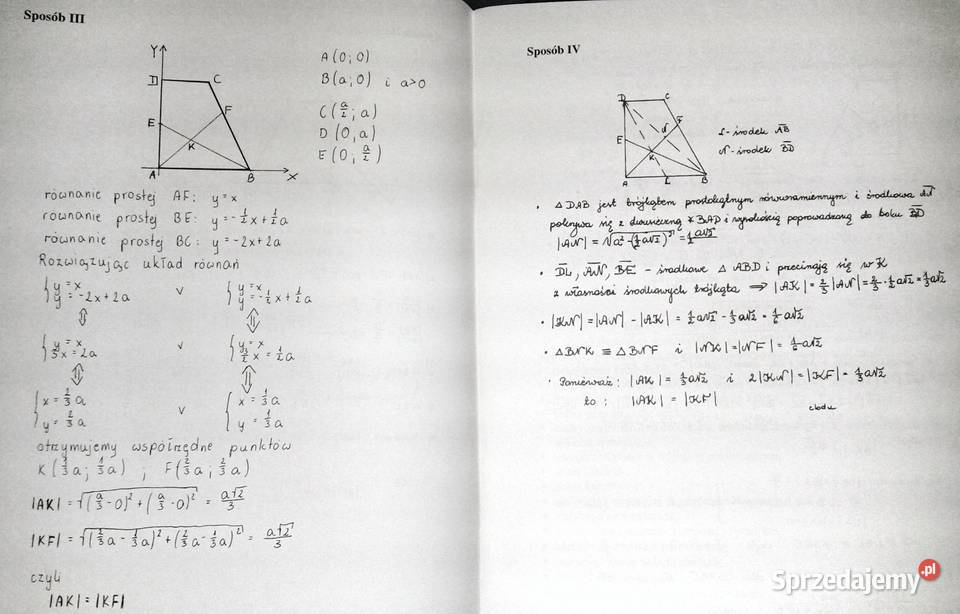 Sposób III
Y
D
C
F
E
K
A
B
X
A(0;0)
B(a;0) i a>0
C(a/2;a)
D(0,a)
E(0;a/2)
równanie prostej AF: y=x
równanie prostej BE: y=-1/2x+1/2a
równanie prostej BC: y=-2x+2a
Rozwiązując układ równań
{y=x v {y=x
y=-2x+2a y=-1/2x+1/2a
⇕ ⇕
{y=x v {y=x
3x=2a 3/2x=1/2a
⇕ ⇕
{x=2/3a v {x=1/3a
y=2/3a y=1/3a
otrzymujemy współrzędne punktów
K(1/3a;1/3a) ; F(2/3a;2/3a)
|AK|=√((a/3-0)²+(a/3-0)²) = a√2/3
|KF|=√((2/3a-1/3a)²+(2/3a-1/3a)²) = a√2/3
czyli
|AK|=|KF|
Sposób IV
D
C
N
F
E
K
A
L
B
L-środek AB
N-środek BD
• △DAB jest trójkątem prostokątnym równoramiennym i środkowa AN
pokrywa się z dwusieczną ∢BAD i wysokością poprowadzoną do boku BD
|AN|=√(a²-(1/2a√2)²)=1/2a√2
• DL, AN, BE - środkowe △ABD i przecinają się w K
z własności środkowych trójkąta ⇒ |AK|=2/3|AN|=2/3·1/2a√2=1/3a√2
• |KN|=|AN|-|AK|=1/2a√2-1/3a√2=1/6a√2
• △BNK ≡ △BNF i |NK|=|NF|=1/6a√2
• Ponieważ: |AK|=1/3a√2 i 2|KN|=|KF|=1/3a√2
to: |AK|=|KF|
cbdu
Sprzedajemy.pl